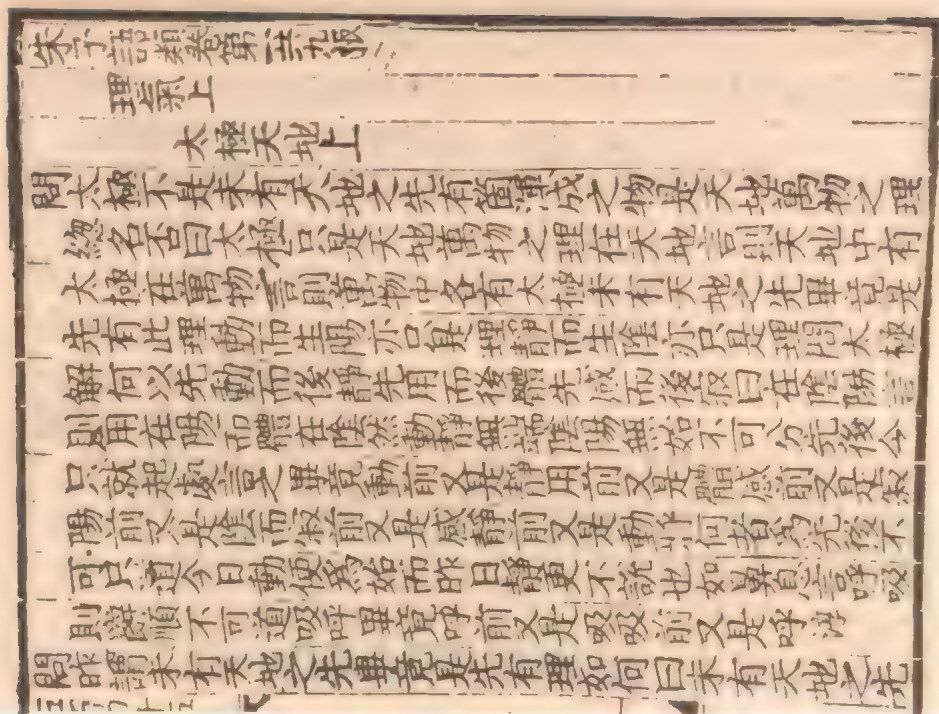 朱子語類卷第一 九板
理氣上
太極天地上
問太極不是未有天地之先有箇渾成之物是天地萬物之理
緫名否曰太極只是天地萬物之理在天地言則天地中有
太極在萬物言則萬物中各有太極未有天地之先畢竟是
先有此理動而生陽亦只是理靜而生陰亦只是理問太極
解何以先動而後靜先用而後體先感而後寂曰在陰陽言
則用在陽而體在陰然動靜無端陰陽無始不可分先後今
只就起處言之畢竟動前又是靜用前又是體感前又是寂
陽前又是陰而寂前又是感靜前又是動將何者爲先後不
可只道今日動便爲始而昨日靜更不說也如鼻息言呼吸
則辭順不可道吸呼畢竟呼前又是吸吸前又是呼淳
問昨謂未有天地之先畢竟是先有理如何曰未有天地之先